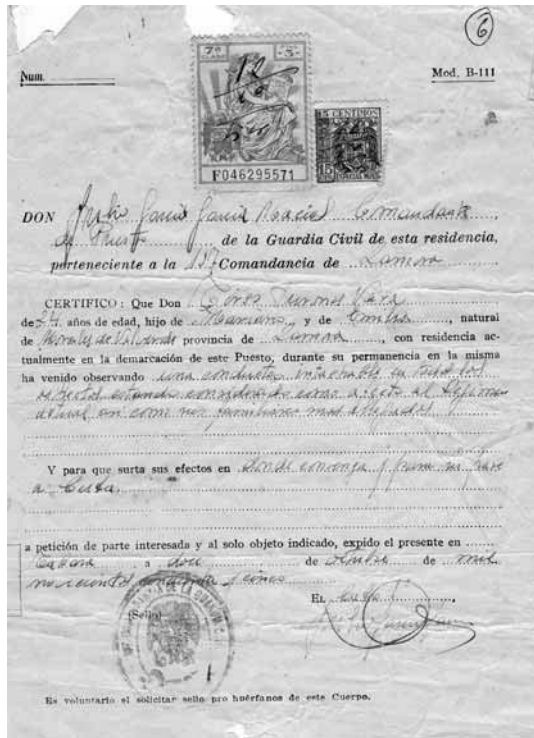 6
Num.
Mod. B-111
7ª
3
15 CENTIMOS
15
ESPECIAL MOVIL
F046295571
DON García García Comandante
de Puesto de la Guardia Civil de esta residencia,
perteneciente a la Comandancia de Zamora
CERTIFICO: Que Don
de años de edad, hijo de Mariano y de Emilia, natural
de Morales de Valverde provincia de Zamora, con residencia ac-
tualmente en la demarcación de este Puesto, durante su permanencia en la misma
ha venido observando una conducta intachable en todos los
aspectos estando considerado como afecto al Régimen
actual asi como sus familiares mas allegados
Y para que surta sus efectos en donde convenga y para su pase
a Cuba
a petición de parte interesada y al solo objeto indicado, expido el presente en
a doce de octubre de mil
novecientos cincuenta y cinco
EL
(Sello)
Es voluntario el solicitar sello pro huérfanos de este Cuerpo.